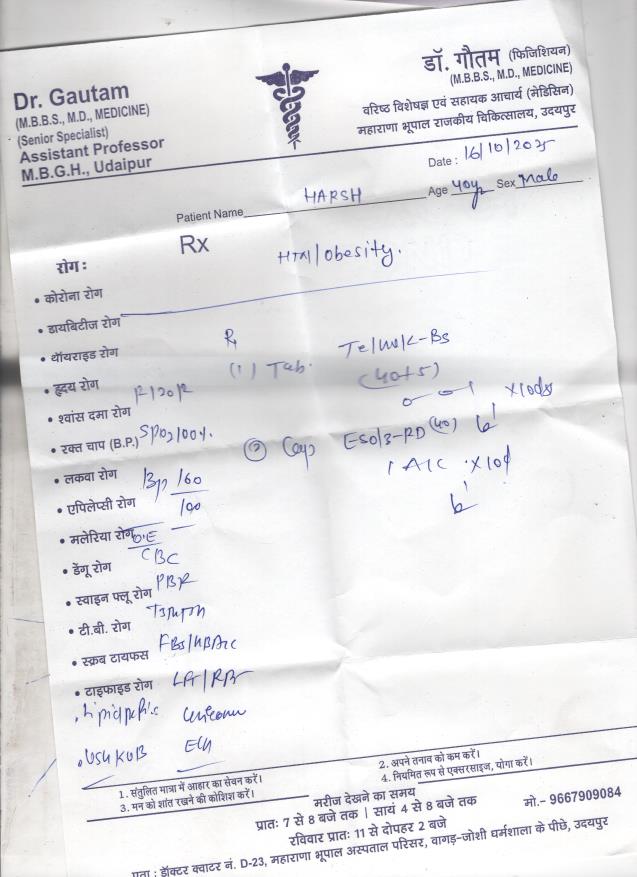 Dr. Gautam
(M.B.B.S., M.D., MEDICINE)
(Senior Specialist)
Assistant Professor
M.B.G.H., Udaipur
डॉ. गौतम (फिजिशियन)
(M.B.B.S., M.D., MEDICINE)
वरिष्ठ विशेषज्ञ एवं सहायक आचार्य (मेडिसिन)
महाराणा भूपाल राजकीय चिकित्सालय, उदयपुर
Date : 16/10/2025
Patient Name HARSH Age 40yr Sex Male
Rx
HTN/Obesity.
रोग :
• कोरोना रोग
• डायबिटीज रोग
• थॉयराइड रोग
R
(1) Tab.
(40+5)
• हृदय रोग
• श्वांस दमा रोग
x10d
• रक्त चाप (B.P.) SPO2 100%
(2) Cap ESO/3-RD (40)
1 A/C x10d
• लकवा रोग
BP 160/100
• एपिलेप्सी रोग
• मलेरिया रोग
• डेंगू रोग CBC
• स्वाइन फ्लू रोग
• टी.बी. रोग
• स्क्रब टायफस FBS/HBA1C
• टाइफाइड रोग
• USG KUB
1. संतुलित मात्रा में आहार का सेवन करें।
2. अपने तनाव को कम करें।
3. मन को शांत रखने की कोशिश करें।
4. नियमित रूप से एक्सरसाइज, योगा करें।
मरीज देखने का समय
प्रातः 7 से 8 बजे तक | सायं 4 से 8 बजे तक
मो.- 9667909084
रविवार प्रातः 11 से दोपहर 2 बजे
पता : डॉक्टर क्वाटर नं. D-23, महाराणा भूपाल अस्पताल परिसर, वागड़-जोशी धर्मशाला के पीछे, उदयपुर